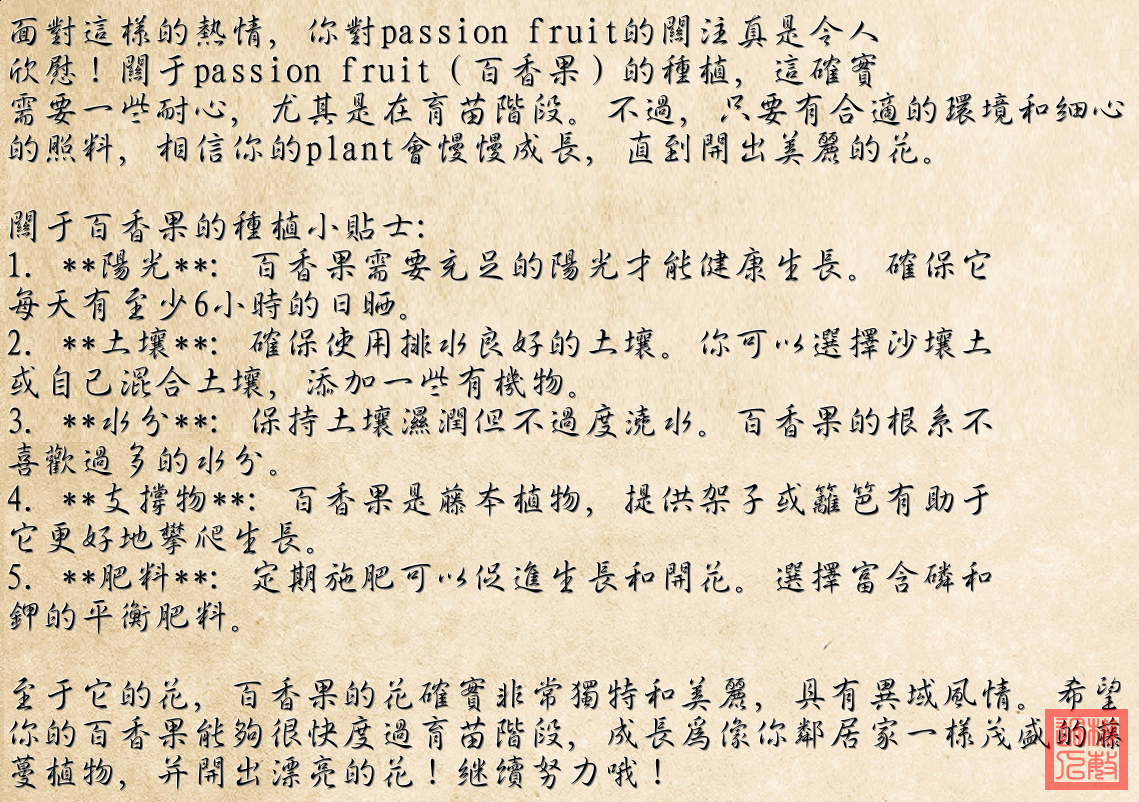 面對這樣的熱情，你對passion fruit的關注真是令人
欣慰！關于passion fruit（百香果）的種植，這確實
需要一些耐心，尤其是在育苗階段。不過，只要有合適的環境和細心
的照料，相信你的plant會慢慢成長，直到開出美麗的花。
關于百香果的種植小貼士：
1. **陽光**：百香果需要充足的陽光才能健康生長。確保它
每天有至少6小時的日晒。
2. **土壤**：確保使用排水良好的土壤。你可以選擇沙壤土
或自己混合土壤，添加一些有機物。
3. **水分**：保持土壤濕潤但不過度澆水。百香果的根系不
喜歡過多的水分。
4. **支撐物**：百香果是藤本植物，提供架子或籬笆有助于
它更好地攀爬生長。
5. **肥料**：定期施肥可以促進生長和開花。選擇富含磷和
鉀的平衡肥料。
至于它的花，百香果的花確實非常獨特和美麗，具有異域風情。希望
你的百香果能夠很快度過育苗階段，成長爲像你鄰居家一樣茂盛的藤
蔓植物，并開出漂亮的花！继續努力哦！